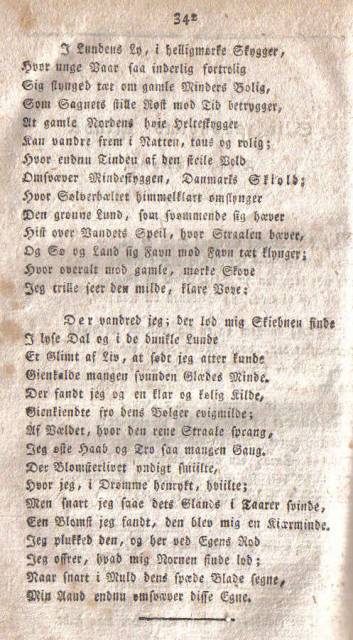 342
I Lundens Ly, i helligmørke Skygger,
Hvor unge Vaar saa inderlig fortrolig
Sig slynged tæt om gamle Minders Bolig,
Som Sagnets stille Røst mod Tid betrygger,
At gamle Nordens høie Helteskygger
Kan vandre frem i Natten, taus og rolig;
Hvor endnu Tinden af den steile Vold
Omsvæver Mindeskyggen, Danmarks Skiold;
Hvor Sølverbæltet himmelklart omslynger
Den grønne Lund, som svømmende sig hæver
Hist over Vandets Speil, hvor Straalen bæver,
Og Sø og Land sig Favn mod Favn tæt klynger;
Hvor overalt mod gamle, mørke Skove
Jeg trille seer den milde, klare Vove:
Der vandred jeg; der lod mig Skiebnen finde
I lyse Dal og i de dunkle Lunde
Et Glimt af Liv, at sødt jeg atter kunde
Gienkalde mangen svunden Glædes Minde.
Der fandt jeg og en klar og kølig Kilde,
Gienkiendte fro dens Bølger evigmilde;
Af Vældet, hvor den rene Straale sprang,
Jeg øste Haab og Tro saa mangen Gang.
Der Blomsterlivet yndigt smiilte,
Hvor jeg, i Drømme henrykt, hviilte;
Men snart jeg saae dets Glands i Taarer svinde,
Een Blomst jeg fandt, den blev mig en Kiærminde.
Jeg plukked den, og her ved Egens Rod
Jeg offrer, hvad mig Nornen finde lod;
Naar snart i Muld dens spæde Blade segne,
Min Aand endnu omsvæver disse Egne.